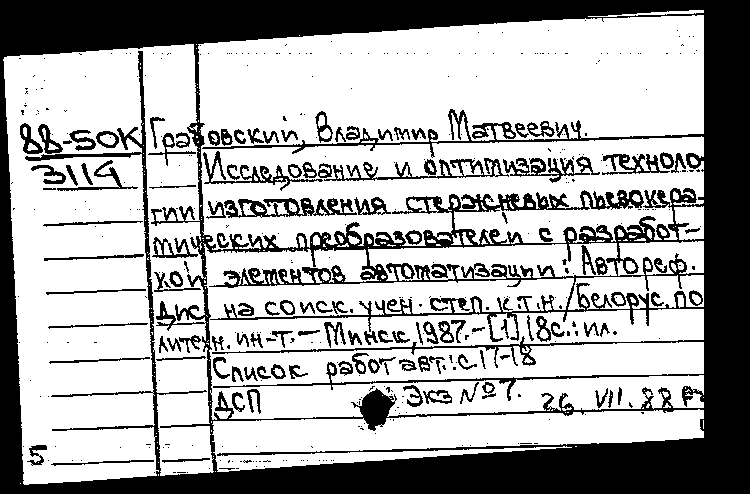 88-50К
3114
Грабовский, Владимир Матвеевич.
Исследование и оптимизация техноло-
гии изготовления стержневых пьезокера-
мических преобразователей с разработ-
кой элементов автоматизации: Автореф.
дис на соиск. учен. степ. к.т.н./Белорус. по
литехн. ин-т. – Минск, 1987. – [1], 18с.: ил.
Список работ авт.: с. 17-18
ДСП Экз №7. 26. VII. 88
5